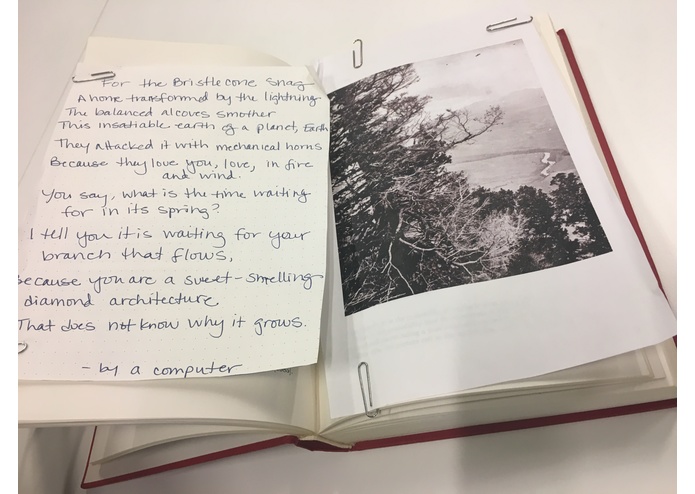 For the Bristlecone Snag
A home transformed by the lightning
The balanced alcoves smother
This insatiable earth of a planet, Earth
They attacked it with mechanical horns
Because they love you, love, in fire
and wind.
You say, what is the time waiting
for in its spring?
I tell you it is waiting for your
branch that flows,
Because you are a sweet-smelling
diamond architecture
That does not know why it grows.
- by a computer